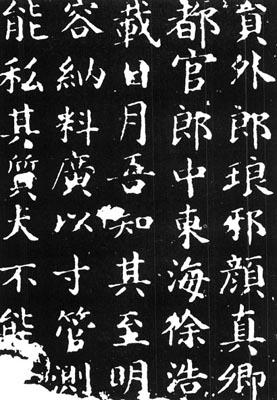 員外郎琅邪顏真卿
都官郎中東海徐浩
載日月吾知其至明
容納料廣以寸管測
能私其質犬不能